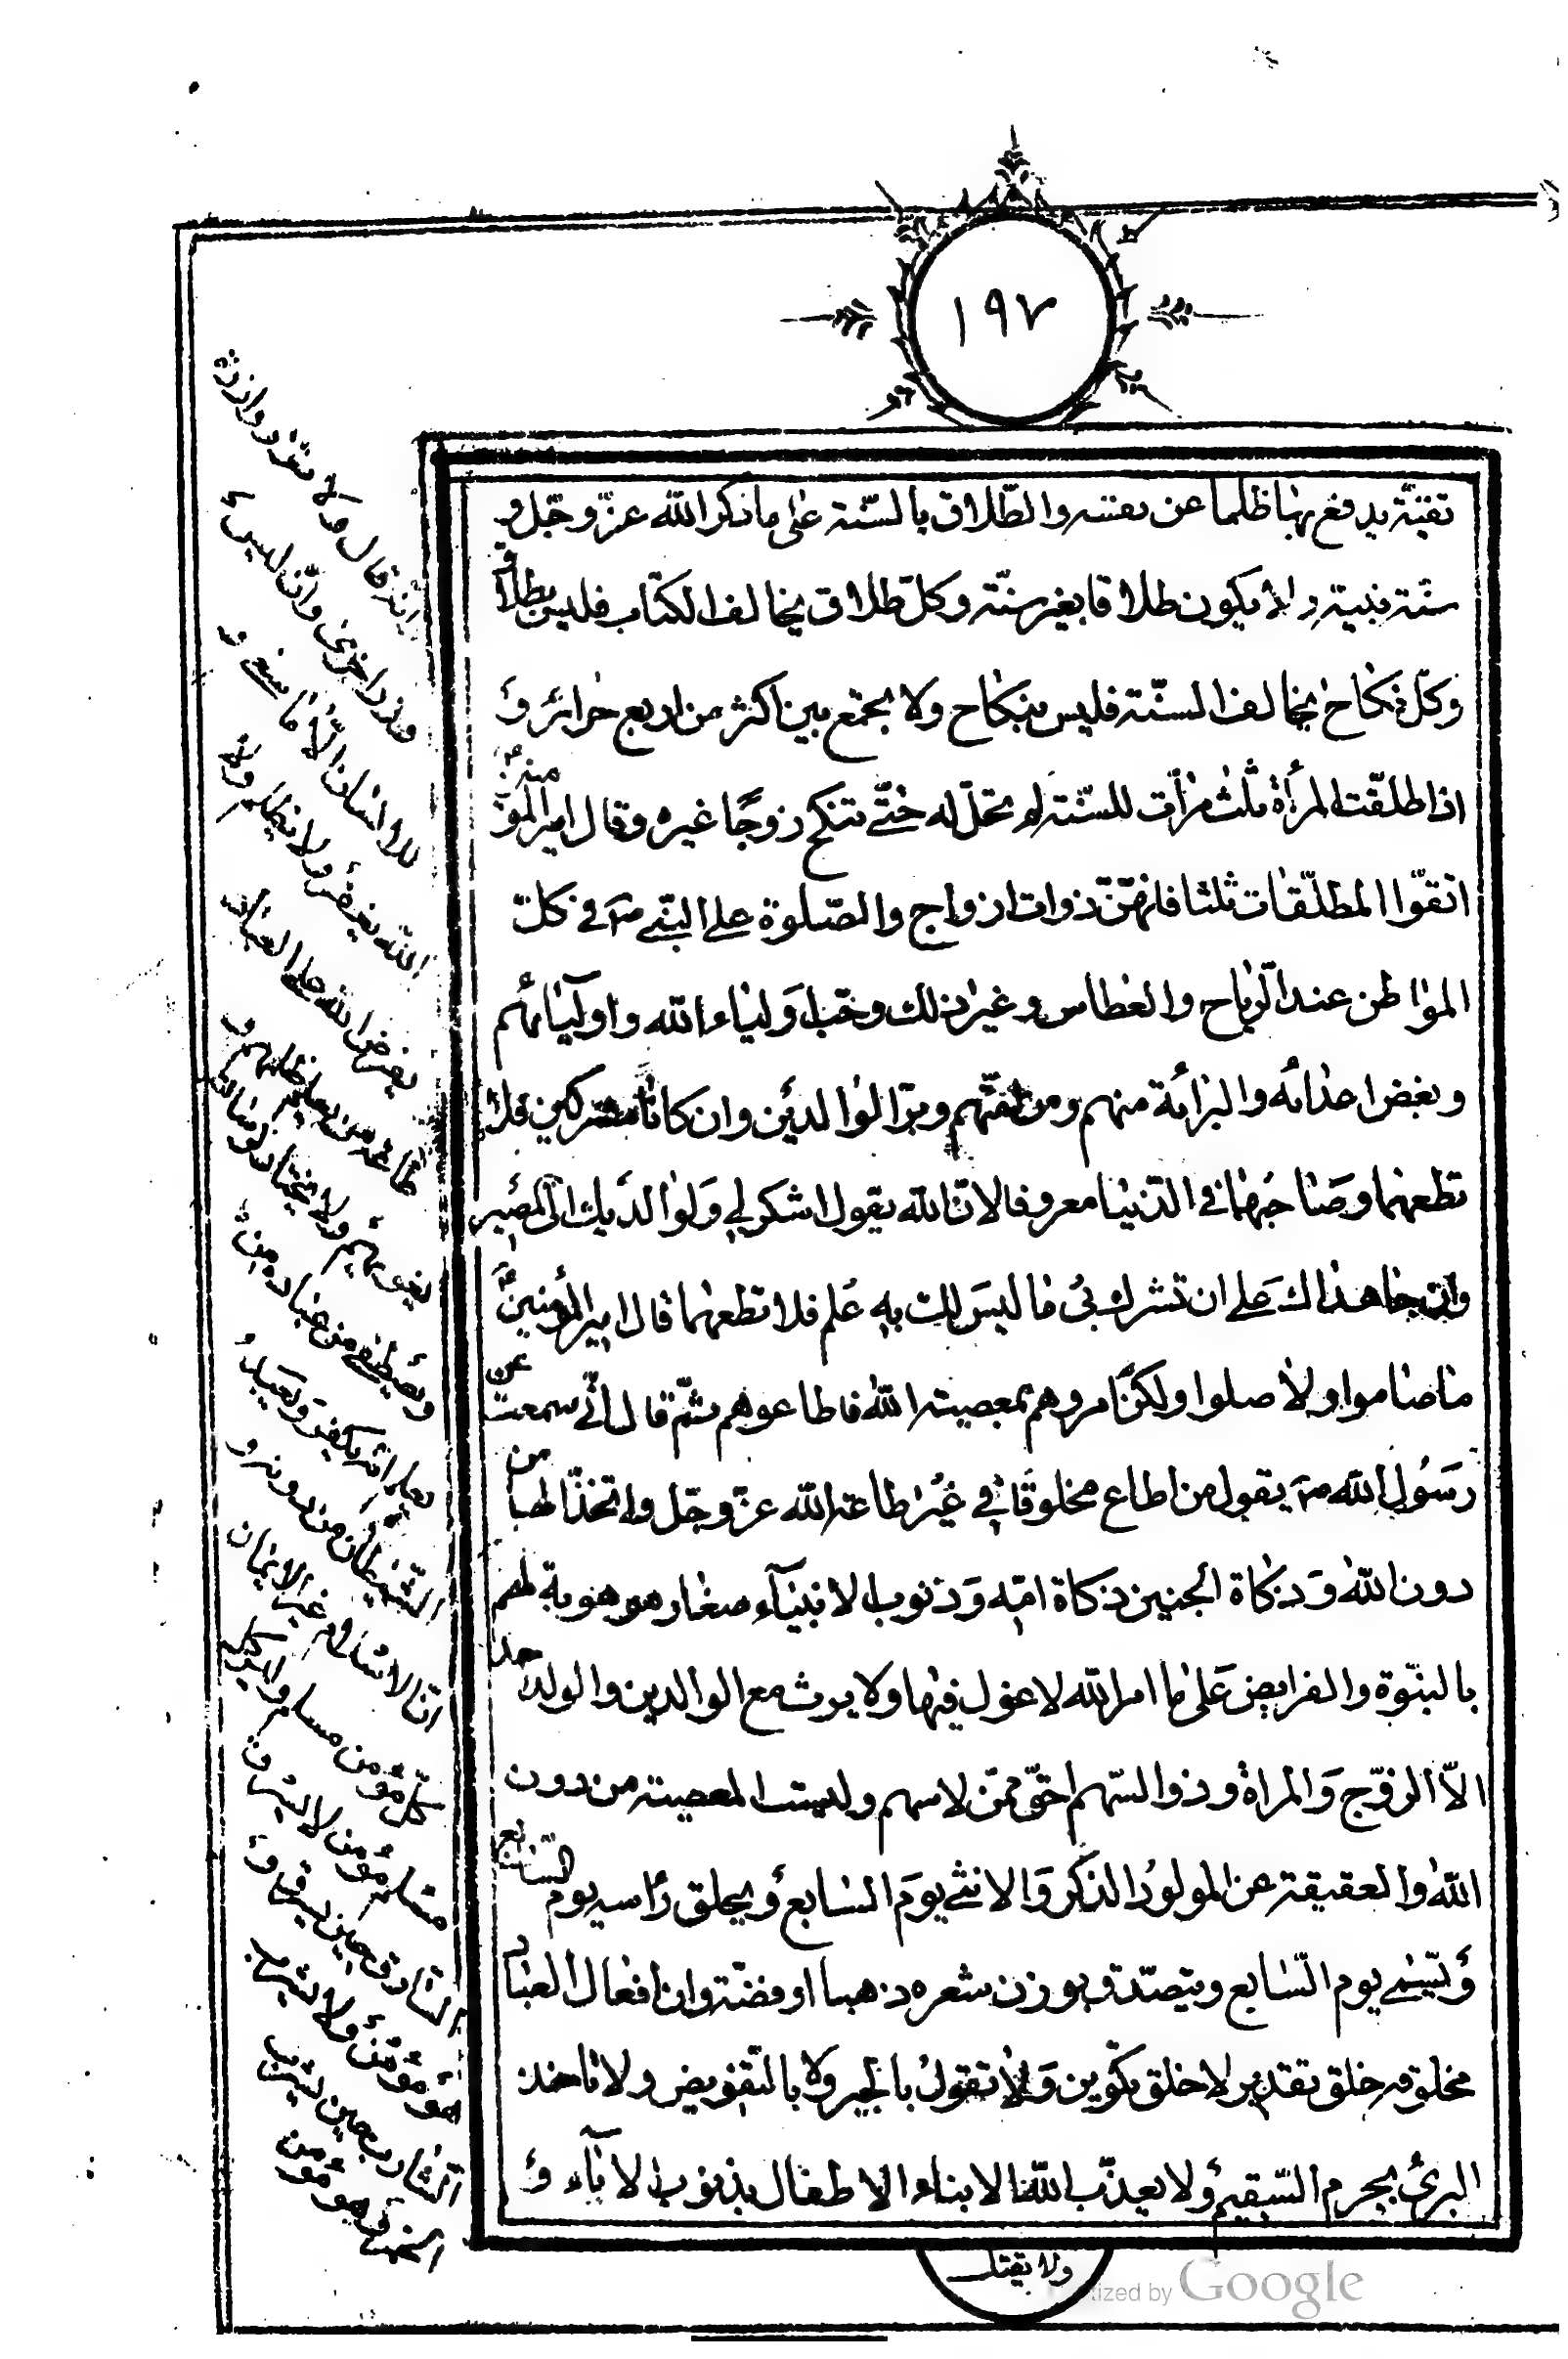 ١٩٧
تقيّة يدفع بها ظلما عن نفسه والطّلاق بالسّنة على ما ذكر الله عزّ وجّل و
سنّة نبيّه ولا يكون طلاقا بغير سنّة وكلّ طلاق يخالف الكتاب فليس بطلاق
وكلّ نكاح يخالف السنّة فليس بنكاح ولا يجمع بين اكثر من اربع حرائر و
اذا طلقّت المرأة ثلث مرّات للسّنة لم تحلّ له حتّى تنكح زوجًا غيره وقال امير المؤمنين
اتقوّا المطلّقات ثلثا فانهّنّ ذوات ازواج والصّلوة على النبّي ص في كلّ
المواطن عند الرّياح والعطاس وغير ذلك وحبّ اولياء الله واوليائهم
وبغض اعدائه والبرائة منهم ومن ائمّتهم وبرّ الوالدين وان كانا مشركين فلا
تطعهما وصاحبهما في الدّنيا معروفا لانّ الله يقول اشكر لي ولوالديك الىّ المصير
وان جاهداك على ان تشرك بى ما ليس لك به علم فلا تطعهما قال امير المؤمنين
ما صاموا ولا صلوا ولكن امروهم بمعصية الله فاطاعوهم ثمّ قال انّى سمعت عن
رسول الله ص يقول من اطاع مخلوقا في غير طاعة الله عزّ وجّل واتخذّ الها من
دون الله وذكاة الجنين ذكاة امّه وذنوب الانبيآء صغار موهوبة لهم
بالنبّوة والفرايض على ما امر الله لا عول فيها ولا يرث مع الوالدين والولد احد
الاّ الزوّج والمراة وذو السّهم احقّ ممّن لا سهم وليست المعصية من دون
الله والعقيقة عن المولود الذكر والانثى يوم السابع ويحلق رأسه يوم السّابع
ويسّمى يوم السّابع ويتصّدق بوزن شعره ذهبا او فضّة وان افعال العباد
مخلوقه خلق تقدير لا خلق تكوين ولا تقول بالجبر ولا بالتفويض ولا تاخذ
البرئ بجرم السّقيم ولا يعذّب الله الابناء الاطفال بذنوب الابآء و
ولا يقتل
انّه قال ولا تزر وازرة
وزر اخرى وانّ ليس
للانسان الاّ ما سعى و
الله يغفر ولا يظلم ولا
يفرض الله على العباد
طاعة من يعلم انّه يظلمهم و
يغويهم ولا يختار لرسالته
ويصطفى من عباده من
يعلم انّه يكفر ويعبد
الشّيطان من دونه و
انّ الاسلام غير الايمان
كلّ مؤمن مسلم وليس كلّ
مسلم مؤمن لا يسرق
السّارق حين يسرق و
هو مؤمن ولا يشرب
الشّارب حين يشرب
الخمر وهو مؤمن
Digitized by Google